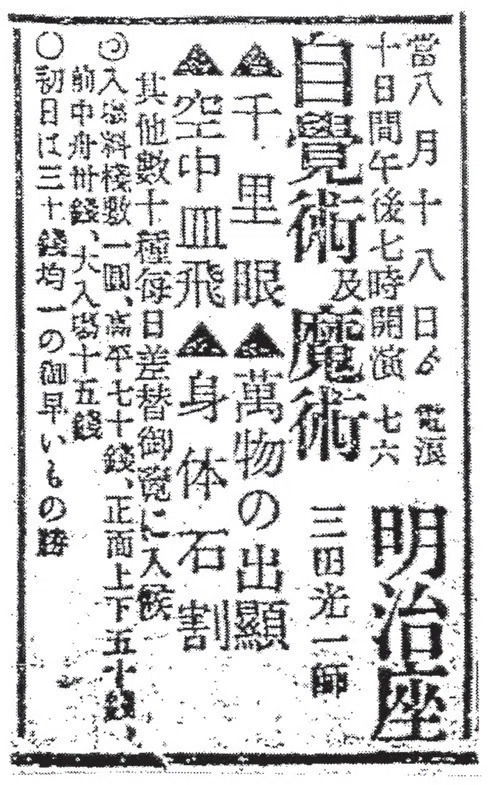 當八月十八日ゟ
十日間午後七時開演
電浪七六
明治座
自覺術及魔術
三田光一師
▲千里眼▲萬物の出顯
▲空中皿飛▲身体石割
其他數十種每日差替御覽に入候
◎入塲料棧敷一圓、高平七十錢、正面上下五十錢、
前中舟卅錢、大入塲十五錢
○初日は三十錢均一の御早いもの勝